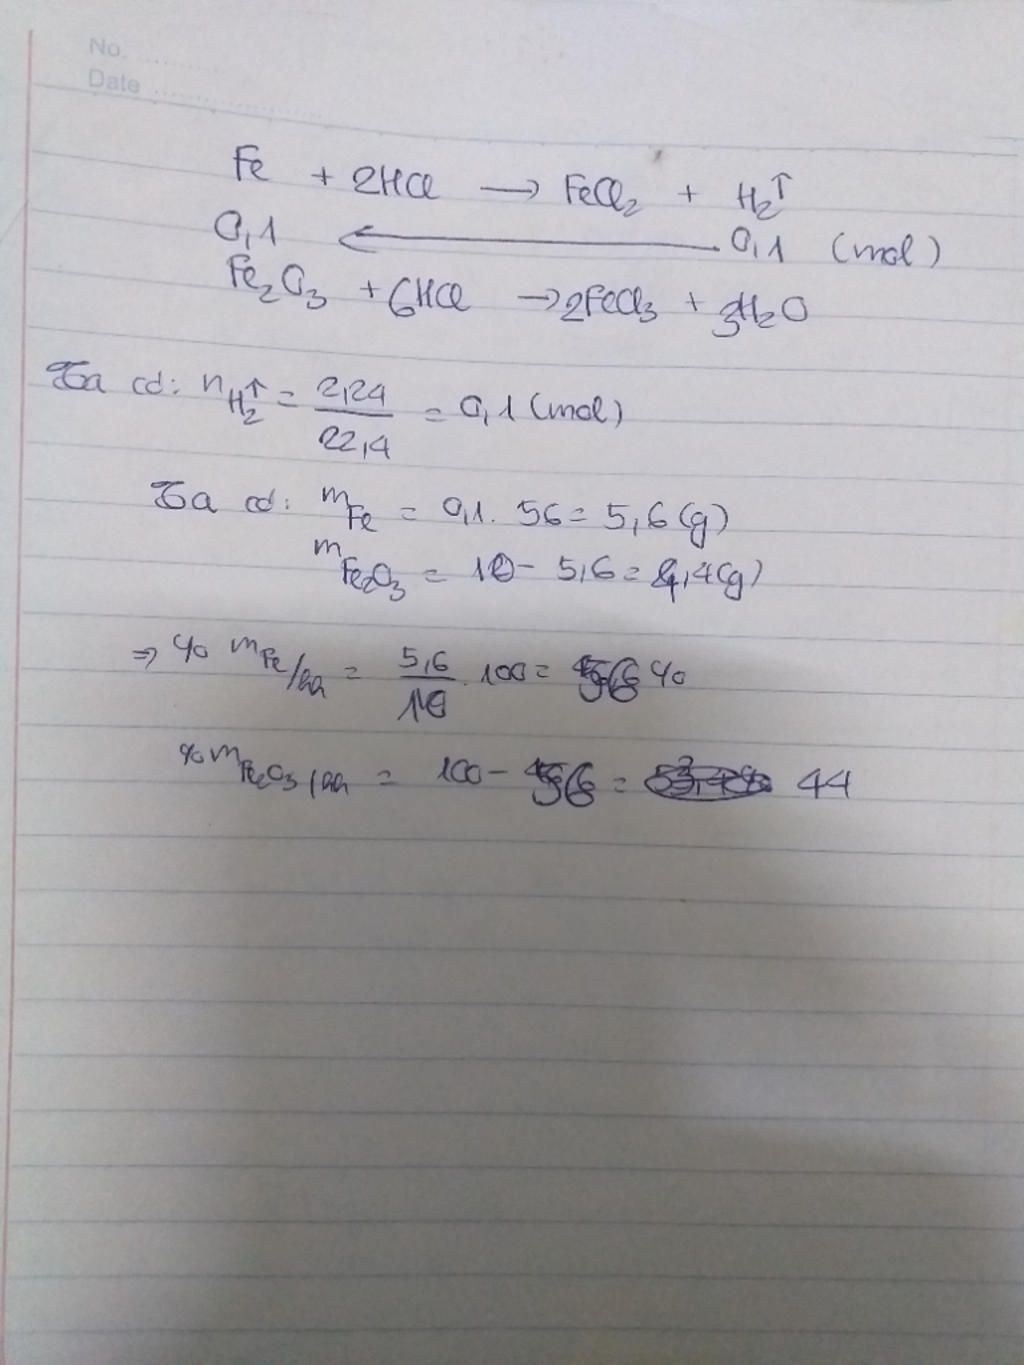 No. ............
Date .....................
Fe + 2HCl → FeCl₂ + H₂↑
0,1 ← 0,1 (mol)
Fe₂O₃ + 6HCl → 2FeCl₃ + 3H₂O
Ta có: nH₂↑ = 2,24/22,4 = 0,1 (mol)
Ta có: mFe = 0,1. 56 = 5,6 (g)
mFe₂O₃ = 10 - 5,6 = 4,4 (g)
⇒ % mFe/hh = 5,6/10 . 100 = 56 %
% mFe₂O₃/hh = 100 - 56 = 44